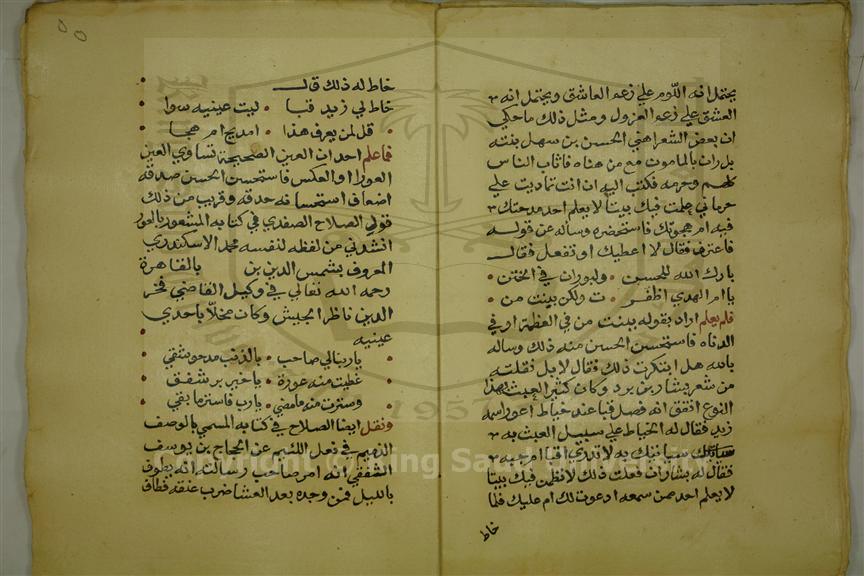 يحتمل انه اللوم على زعم العاشق ويحتمل انه
العشق على زعم العزول ومثل ذلك ماحكي
ان بعض الشعرا هني الحسن بن سهل ببنته
بوران بالمامون مع من هناه فاثاب الناس
كلهم وحرمه فكتب اليه ان انت تماديت علي
حرماني عملت فيك بيتا لا يعلم احد مدحتك
فيه ام هجوتك فاستحضره وساله عن قوله
فاعترف فقال لا اعطيك او تفعل فقال
بارك الله للحسن ولبوران في الختن
ياامام الهدي اظفر ت ولكن ببنت من
فلم يعلم اراد بقوله ببنت من في العظمة او في
الدناه فاستحسن الحسن منه ذلك وساله
بالله هل ابتكرت ذلك فقال لا بل نقلته
من شعر بشار بن برد وكان كثير العبث بهذا
النوع اتفق انه فصل قبا عند خياط اعور اسمه
زيد فقال له الخياط علي سبيل العبث به
سأتيك به لا تدري اقبا ام جبه
فقال له بشار ان فعلت ذلك لانظمن فيك بيتا
لا يعلم احد ممن سمعه ادعوت لك ام عليك فلما
خاط
٥٥
خاط له ذلك قال
خاط لي زيد قبا ليت عينيه سوا
قل لمن يعرف هذا امديح ام هجا
فما علم احد ان العين الصحيحة تساوي العين
العورا او العكس فاستحسن الحسن صدقه
اضعاف استحسانه حدقه وقريب من ذلك
قول الصلاح الصفدي في كتابه المشعور بالعور
انشدني من لفظه لنفسه محمد الاسكندري
المعروف بشمس الدين بن بالقاهرة
رحمه الله تعالي في وكيل القاضي فخر
الدين ناظر الجيش وكان مخلا باحدي
عينيه
يارب لي صاحب بالذنب مدحو شفي
غطيت منه عورة ياخير بر شفف
وسترت منه ما مضي يارب فاستر ما بقي
ونقل ايضا الصلاح في كتابه المسمي بالوصف
الذميم في فعل اللئيم عن الحجاج بن يوسف
الثقفي انه امر صاحب رسالته انه يطوف
بالليل فمن وجده بعد العشا ضرب عنقه فطاف
Copyright © King Saud University
1957